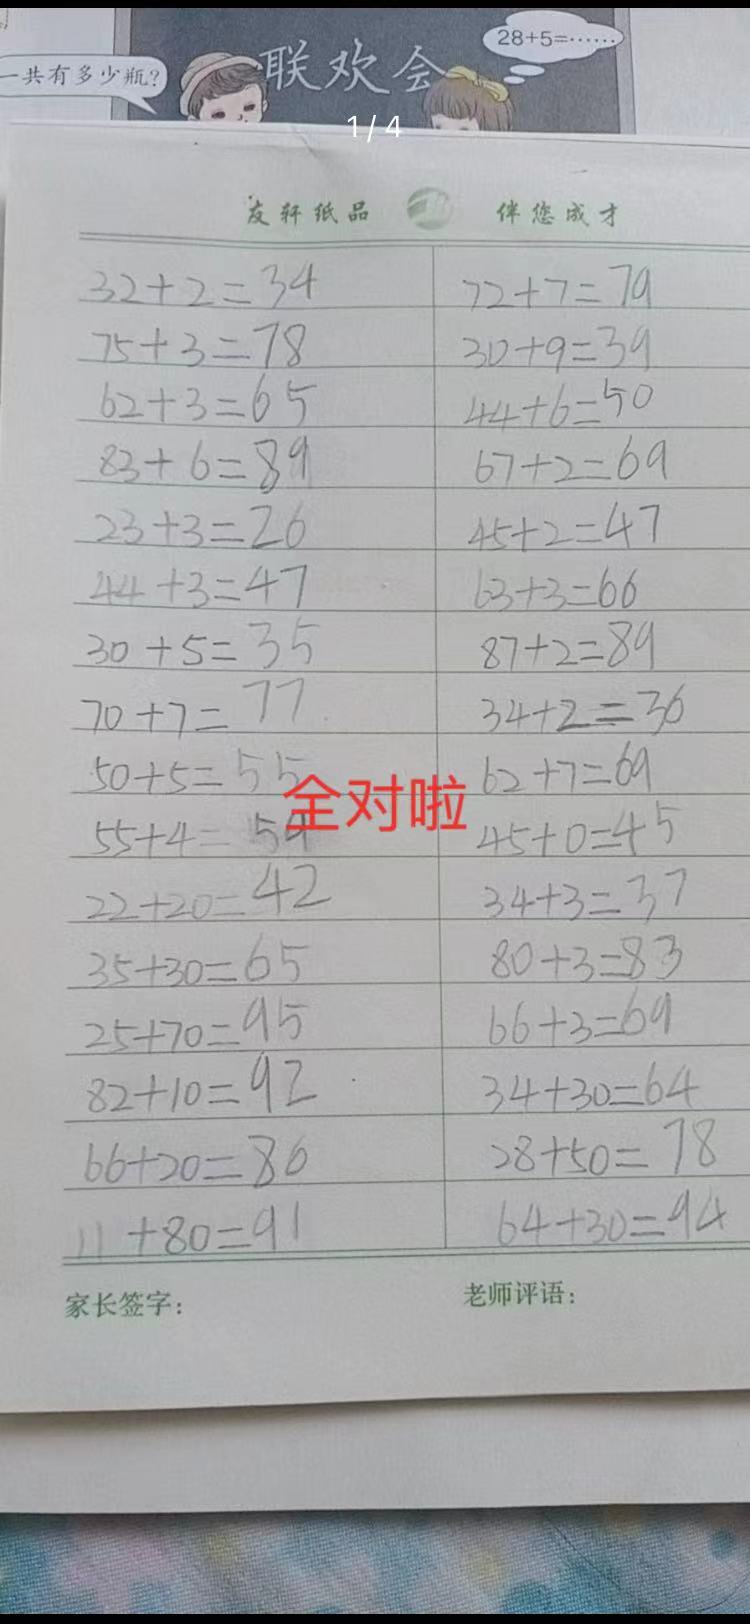 一共有多少瓶?
联欢会
28+5=……
1/4
友轩纸品 伴您成才
32+2=34 72+7=79
75+3=78 30+9=39
62+3=65 44+6=50
83+6=89 67+2=69
23+3=26 45+2=47
44+3=47 63+3=66
30+5=35 87+2=89
70+7=77 34+2=36
50+5=55 62+7=69
全对啦
55+4=59 45+0=45
22+20=42 34+3=37
35+30=65 80+3=83
25+70=95 66+3=69
82+10=92 34+30=64
66+20=86 28+50=78
11+80=91 64+30=94
家长签字: 老师评语: